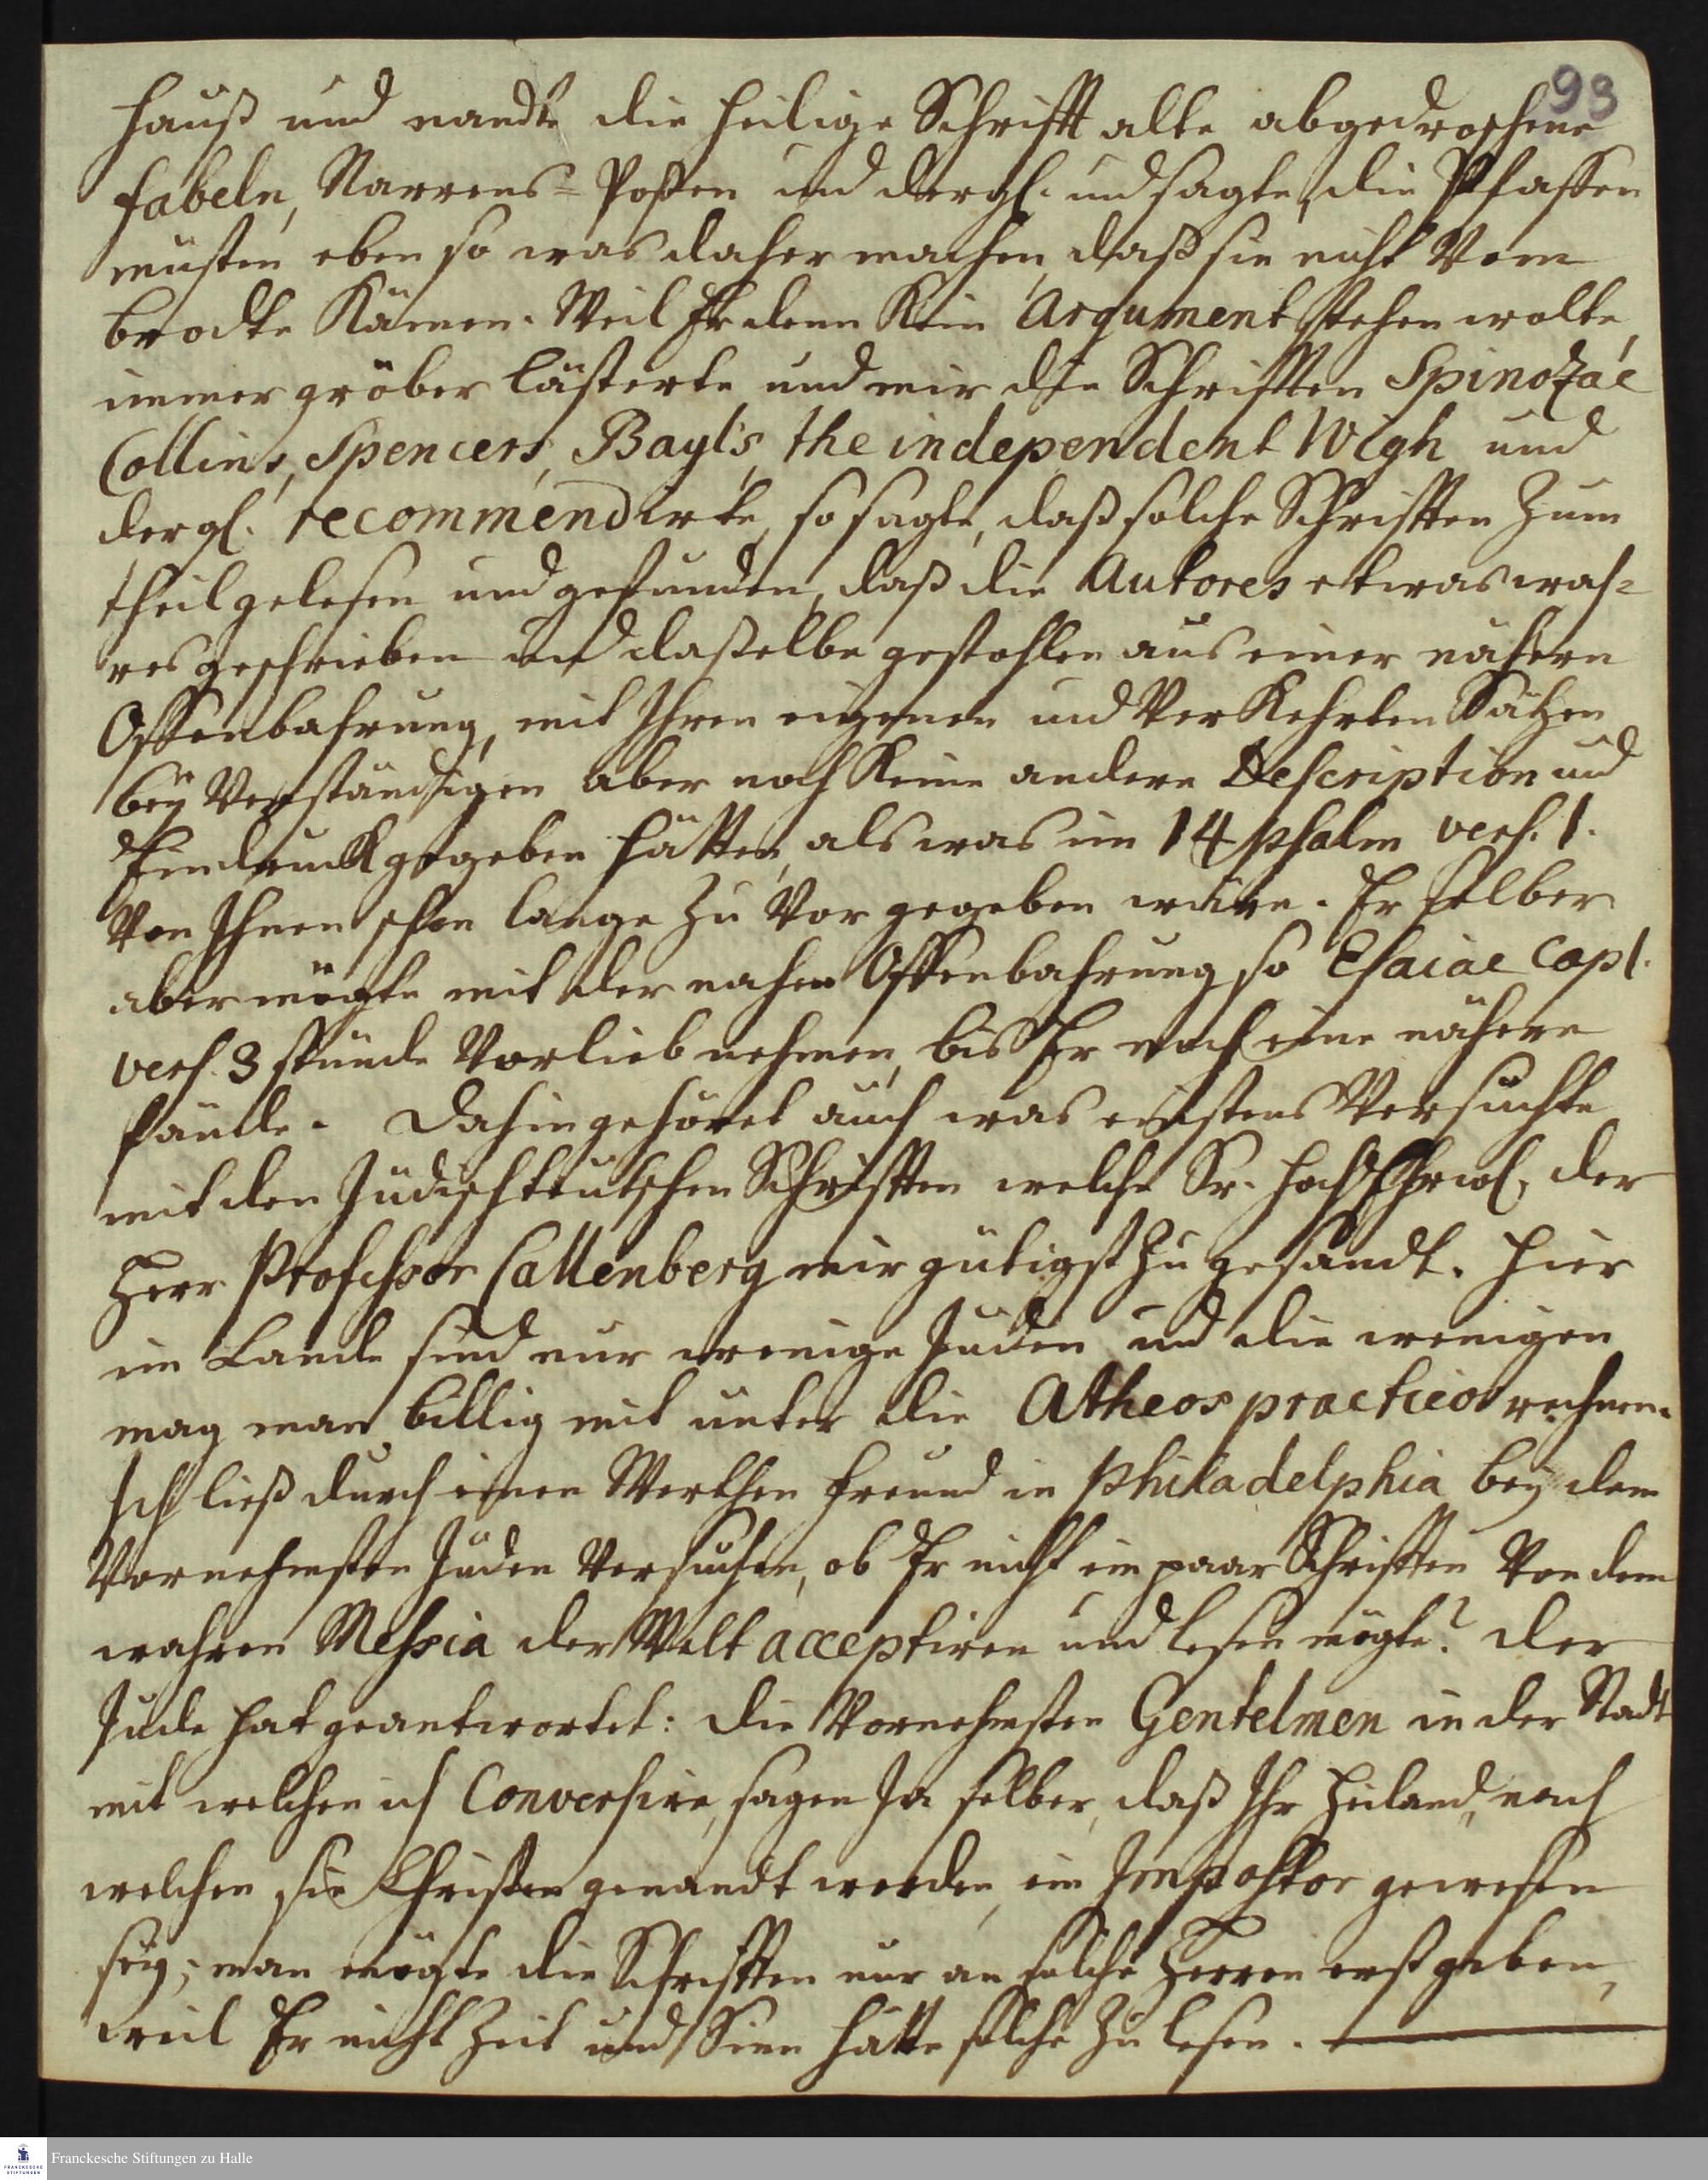 93
Hauß und nandte die heilige Schrifft alte abgedroschene
fabeln, Narrens-Poßen und dergl. und sagte, die Pfaffen
müsten eben so was daher machen, daß sie nicht Vom
brodte Kämen. Weil Er denn Kein Argument stehen wolte,
immer gröber lästerte und mir die Schrifften Spinozae
Collins, Spencers, Bayl's, the independent Wigh und
dergl. recommendirte, so sagte, daß solche Schrifften Zum
theil gelesen und gefunden, daß die Autores etwas wah=
res geschrieben und daßelbe gestohlen aus einer nähern
Offenbahrung, mit Ihren eigenen und Verkehrten Sätzen
bey Verständigen aber noch Keine andere Description und
Eindruck gegeben hätten, als was im 14 psalm vers. 1.
Von Ihnen schon lange Zu Vor gegeben wäre. Er selber
aber mögte mit der nahen Offenbahrung so Esaiae Cap 1.
vers. 3 stünde Vorlieb nehmen, bis Er noch eine nähere
fände. Dahin gehöret auch was erstens Versuchte
mit den Jüdischteutschen Schrifften welche Sr. HochEhrw. der
Herr Professor Callenberg mir gütigst Zu gesandt. Hier
im Lande sind nur wenige Juden und die wenigen
mag man billig mit unter die Atheos practicos rechnen.
Ich ließ durch einen Werthen freund in Philadelphia bey dem
Vornehmsten Juden Versuchen, ob Er nicht ein paar Schrifften Von dem
wahren Messia der Welt acceptiren und lesen mögte? Der
Jude hat geantwortet: die Vornehmsten Gentelmen in der Stadt
mit welchen ich Conversire, sagen Ja selber, daß Ihr Heiland, nach
welchen sie Christen genandt werden, ein Impostor gewesen
sey; man mögte die Schrifften nur an solche Herren erst geben,
weil Er nicht Zeit und Sinn hätte solche Zu lesen.
Franckesche Stiftungen zu Halle